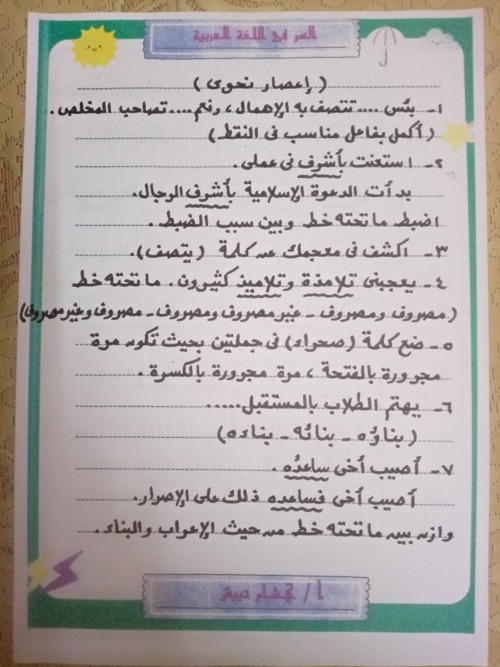 السر في اللغة العربية
( إعصار نحوى )
١- بئس .... تتصف به الإهمال ، ونعم .... تصاحب المخلص .
( أكمل بفاعل مناسب فى النقط )
٢- استعنت بأشرف فى عملى .
بدأت الدعوة الإسلامية بأشرف الرجال .
اضبط ما تحته خط وبين سبب الضبط .
٣- اكشف فى معجمك عن كلمة ( يتصف ) .
٤- يعجبنى تلامذة وتلاميذ كثيرون . ما تحته خط
( مصروف ومصروف - غير مصروف ومصروف - مصروف وغير مصروف )
٥- ضع كلمة ( صحراء ) فى جملتين بحيث تكون مرة
مجرورة بالفتحة ، مرة مجرورة بالكسرة .
٦- يهتم الطلاب بالمستقبل .....
( بناؤه - بنائه - بناءه )
٧- أصيب أخى ساعده .
أصيب أخى فساعده ذلك على الإصرار .
وازن بين ما تحته خط من حيث الإعراب والبناء .
أ /